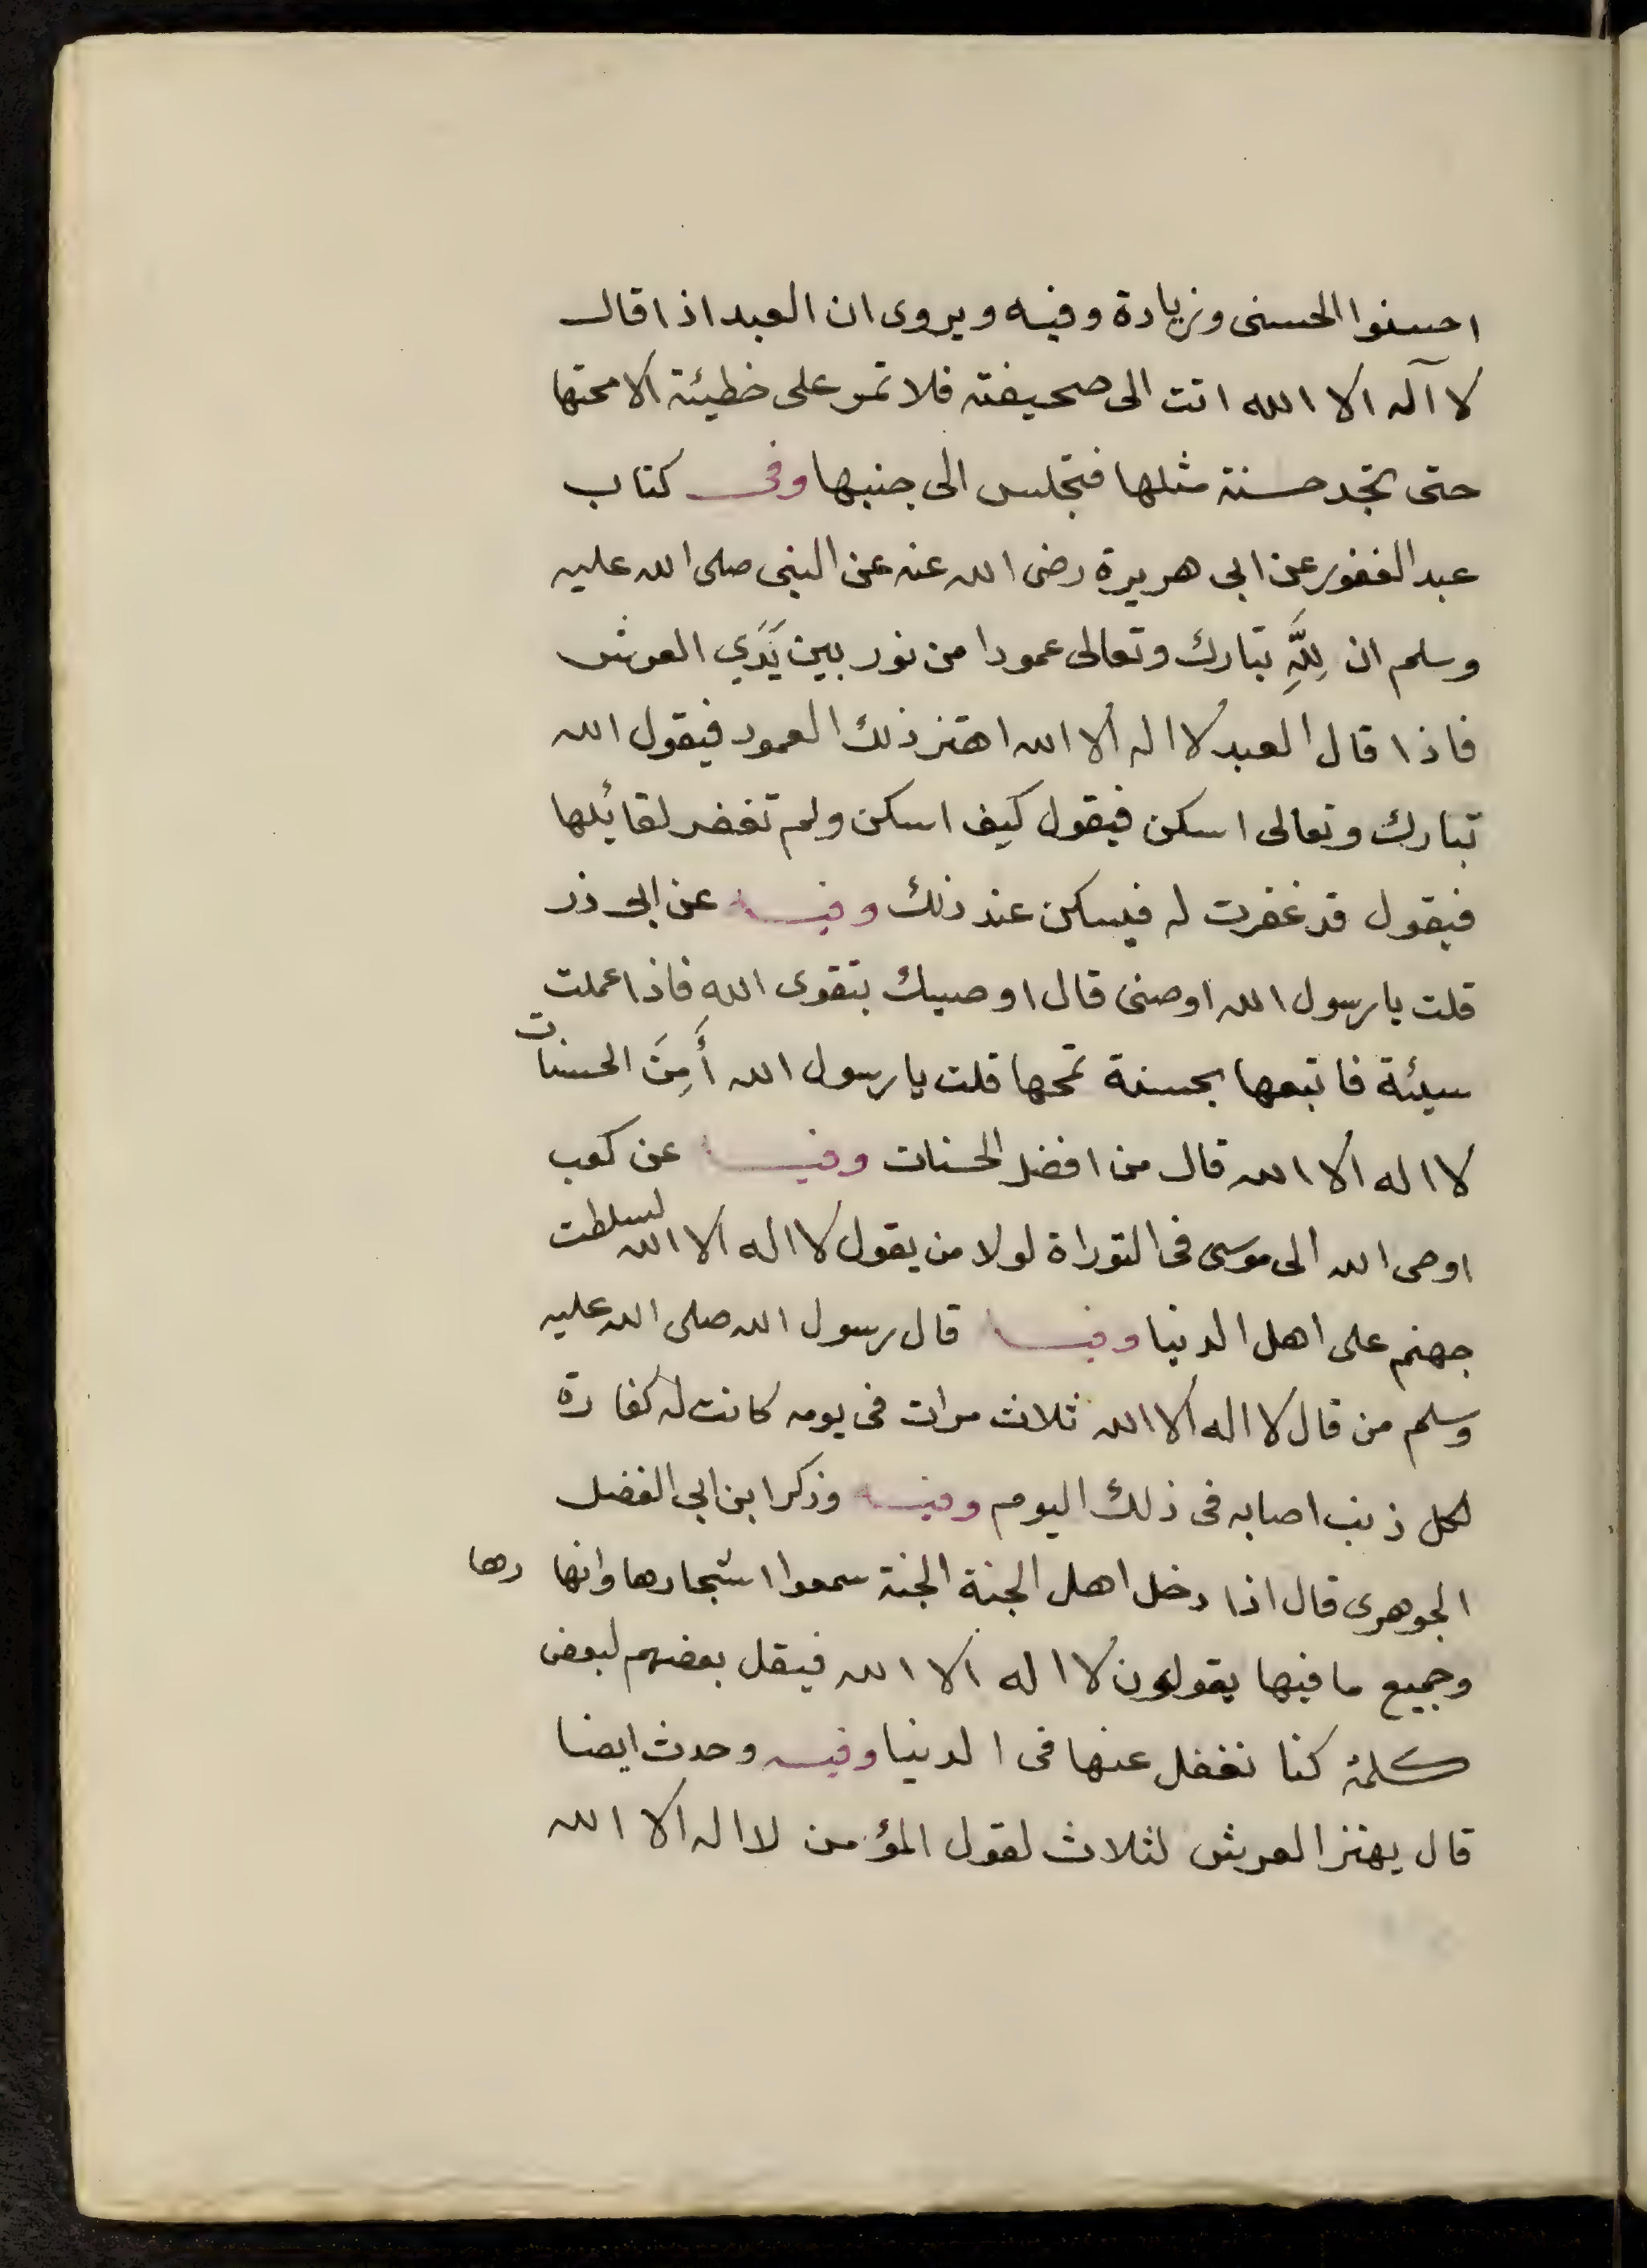 احسنوا الحسنى وزيادة وفيه ويروى ان العبد اذا قال
لا آله الا الله اتت الى صحيفته فلا تمر على خطيئة الا محتها
حتى تجد حسنة مثلها فتجلس الى جنبها وفى كتاب
عبد الغفور عن ابى هريرة رضى الله عنه عن النبى صلى الله عليه
وسلم ان لِلَّهِ تبارك وتعالى عمودا من نور بين يَدَي العرش
فاذا قال العبد لا اله الا الله اهتز ذلك العمود فيقول الله
تبارك وتعالى اسكن فيقول كيف اسكن ولم تغفر لقائلها
فيقول قد غفرت له فيسكن عند ذلك وفيه عن ابى ذر
قلت يا رسول الله اوصنى قال اوصيك بتقوى الله فاذا عملت
سيئة فاتبعها بحسنة تمحها قلت يا رسول الله أَمِنَ الحسنات
لا اله الا الله قال من افضل الحسنات وفيه عن كعب
اوحى الله الى موسى فى التوراة لولا من يقول لا اله الا الله لسلطت
جهنم على اهل الدنيا وفيه قال رسول الله صلى الله عليه
وسلم من قال لا اله الا الله ثلاث مرات فى يومه كانت له كفارة
لكل ذنب اصابه فى ذلك اليوم وفيه وذكر ابن ابى الفضل
الجوهرى قال اذا دخل اهل الجنة الجنة سمعوا اشجارها وانهارها
وجميع ما فيها يقولون لا اله الا الله فيقل بعضهم لبعض
كلمة كنا نغفل عنها فى الدنيا وفيه وحدث ايضا
قال يهتز العرش لثلاث لقول المؤمن لا اله الا الله